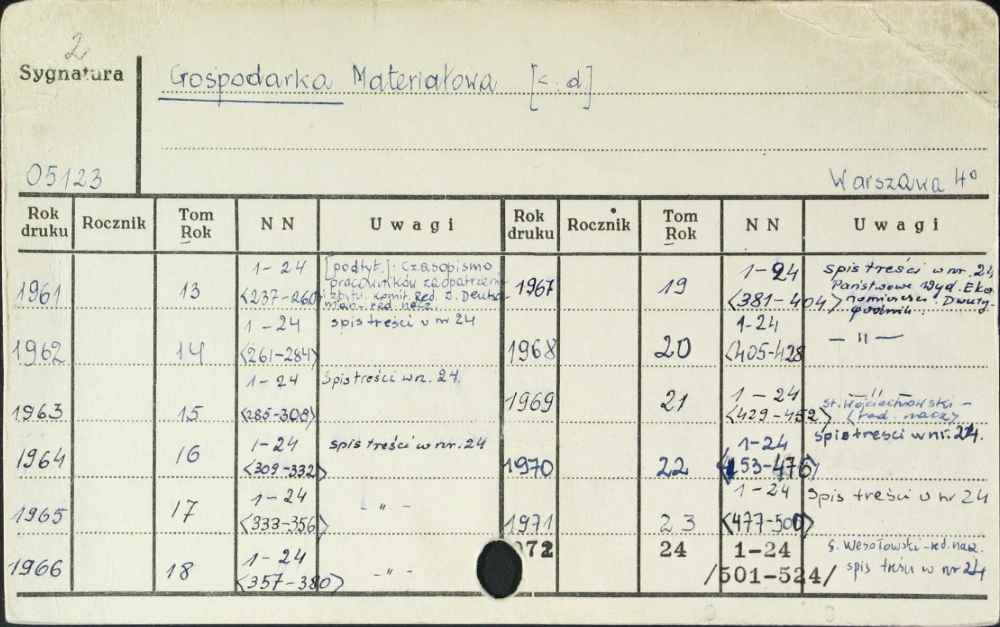 2
Sygnatura
Gospodarka Materiałowa [c.d]
05123
Warszawa 4°
Rok druku Rocznik Tom Rok NN Uwagi Rok druku Rocznik Tom Rok NN Uwagi
1961 13 1-24 <237-260> [podtyt.]: Czasopismo
pracowników zaopatrzenia
i zbytu. Komit. Red. J.
red. nacz.
1962 14 1-24 <261-284> spis treści w nr 24
1963 15 1-24 <285-308> Spis treści w nr. 24.
1964 16 1-24 <309-332> spis treści w nr. 24
1965 17 1-24 <333-356> -"-
1966 18 1-24 <357-380> -"-
1967 19 1-24 <381-404> spis treści w nr. 24
Państwowe Wyd. Eko
nomiczne Dwuty-
godnik.
1968 20 1-24 <405-428> -"-
1969 21 1-24 <429-452> -"-
St. Wojciechowski -
(red. nacz)
1970 22 1-24 <453-476> Spis treści w nr. 24.
1971 23 1-24 <477-500> Spis treści w nr 24
972 24 1-24 /501-524/ S. Wesołowski - red. nacz.
spis treści w nr 24